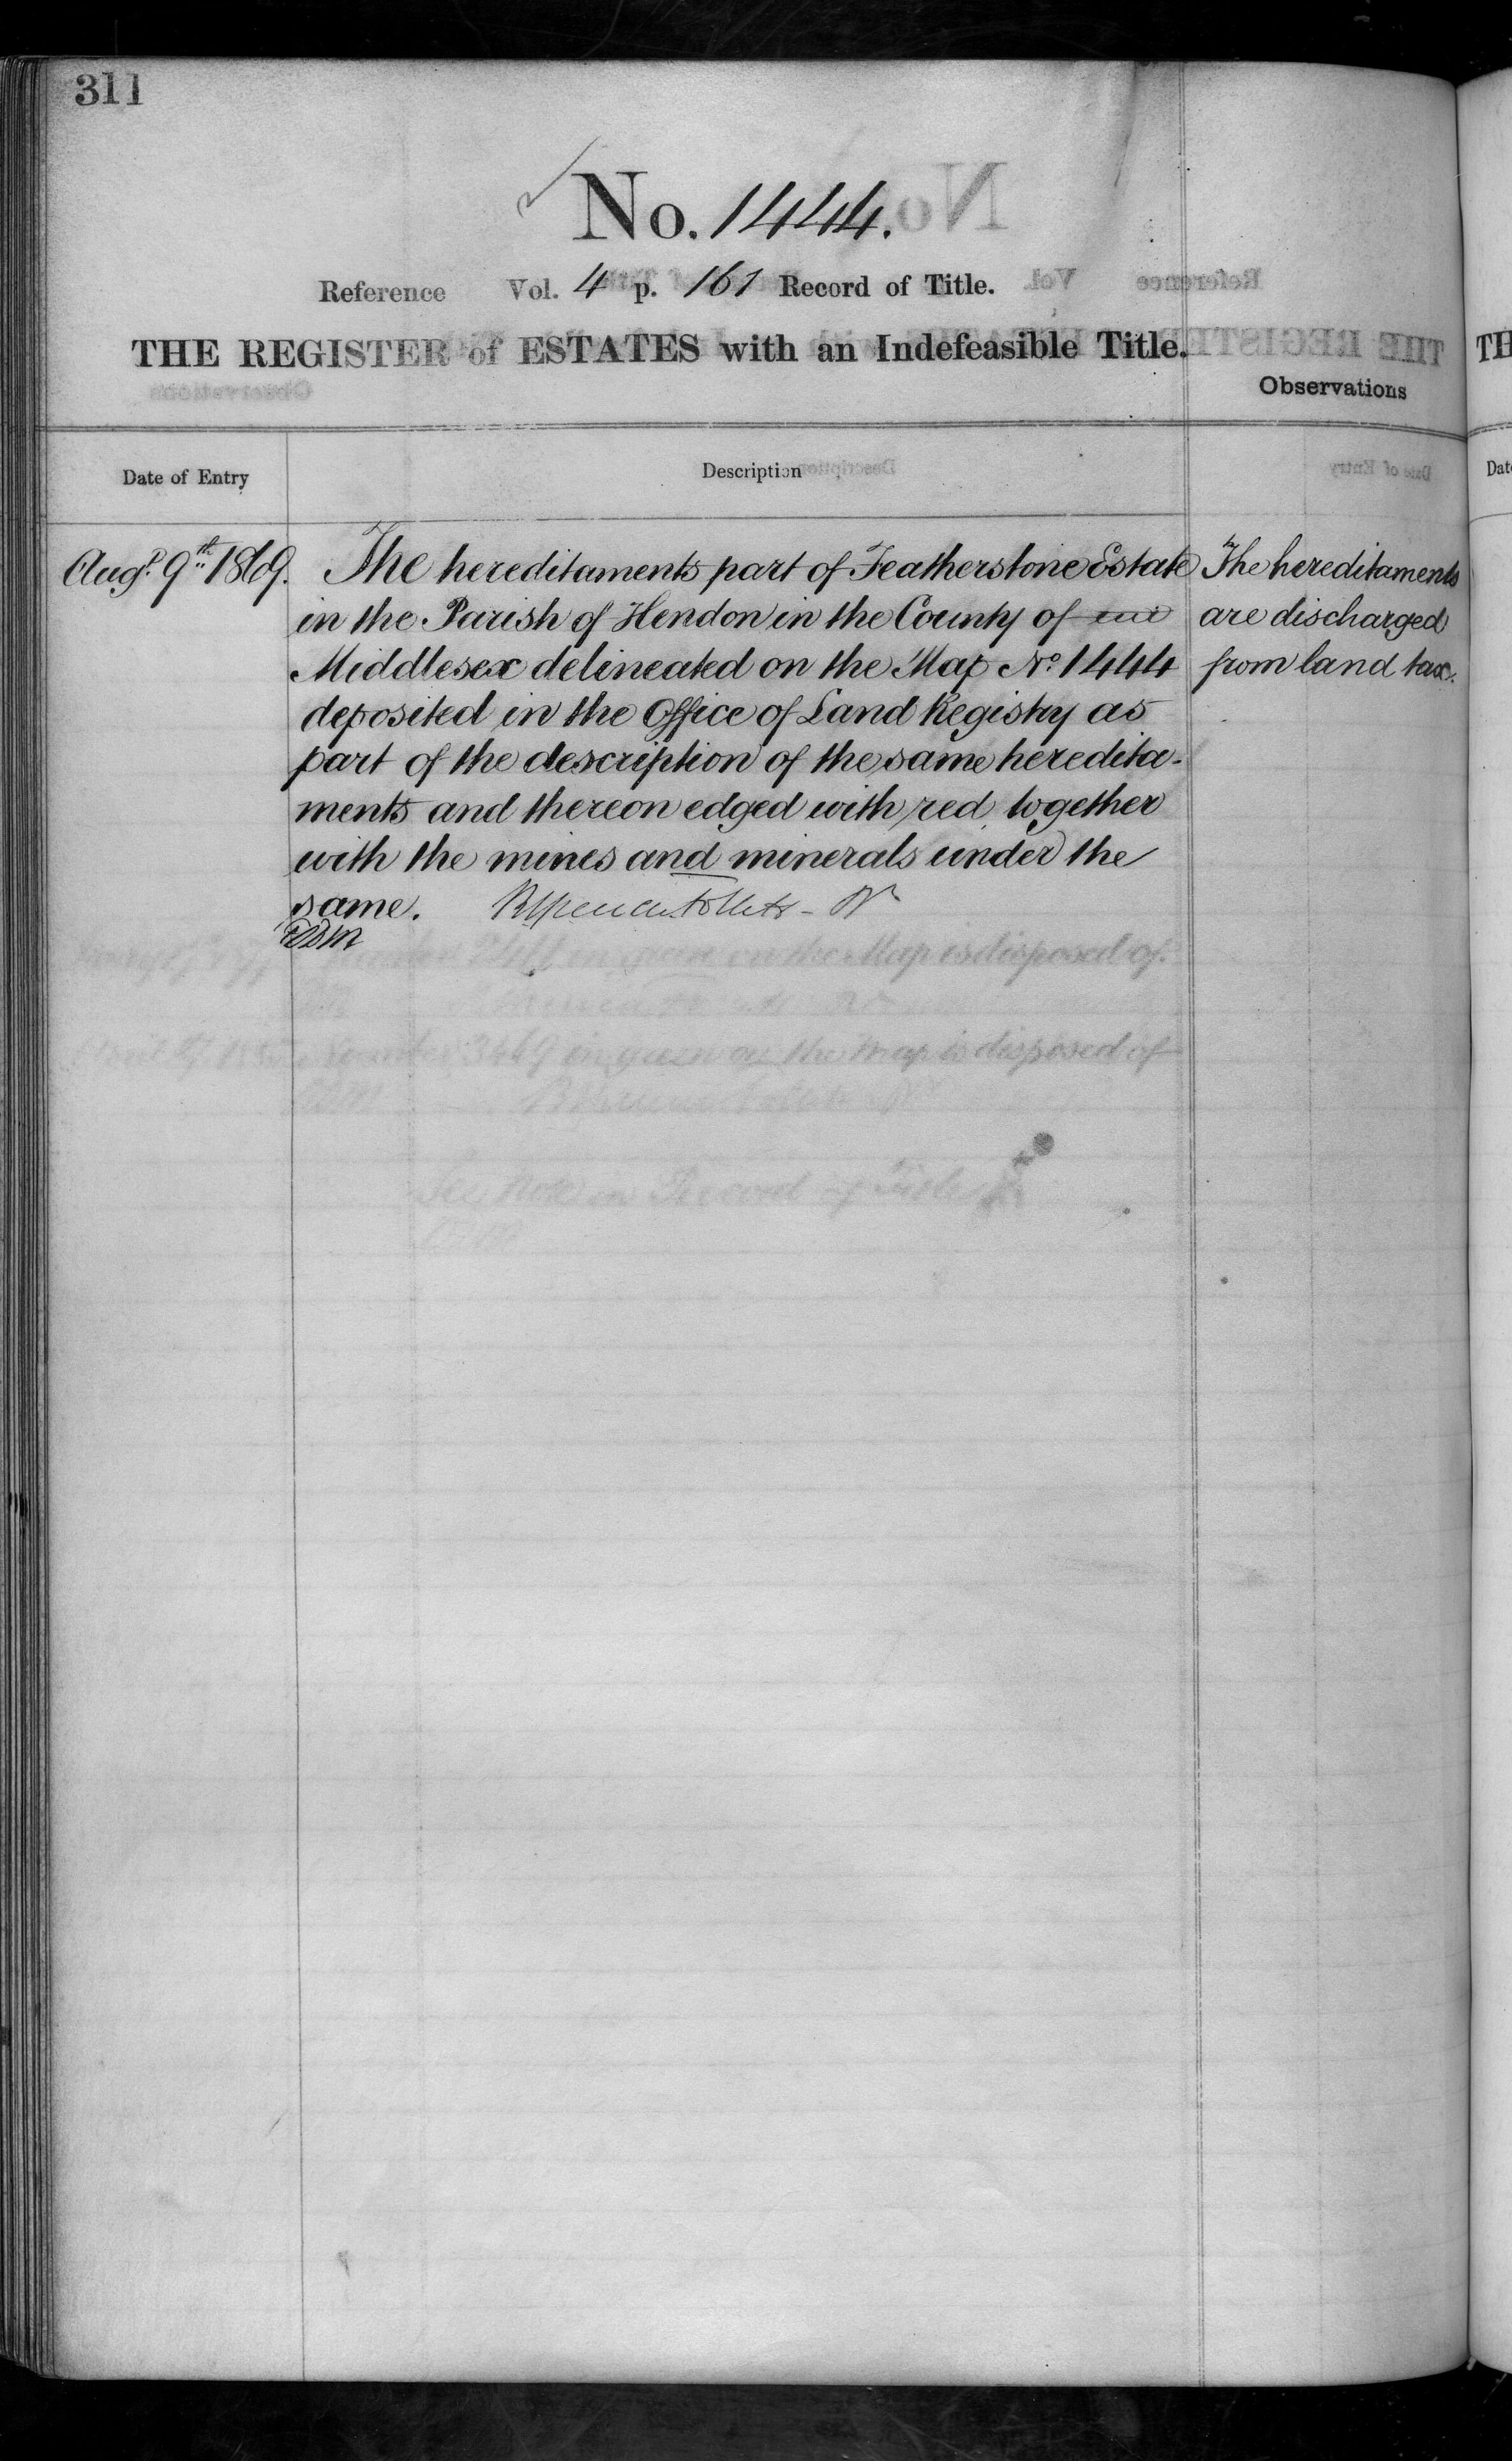 311
No. 1444.
Reference Vol. 4 p. 161 Record of Title.
THE REGISTER of ESTATES with an Indefeasible Title.
Observations
Date of Entry
Description
Augt. 9th 1869.
The hereditaments part of Featherstone Estate
in the Parish of Hendon in the County of
Middlesex delineated on the Map No. 1444
deposited in the Office of Land Registry as
part of the description of the same heredita-
ments and thereon edged with red, together
with the mines and minerals under the
same.
The hereditaments
are discharged
from land tax.
in green on the Map is disposed of.
3469 in green on the Map is disposed of
See Note in Record of Title
TH
Dat